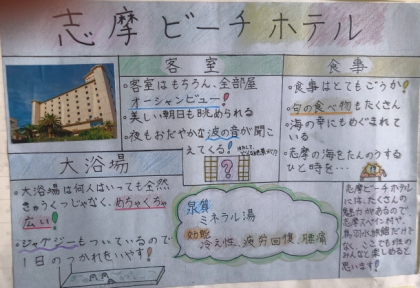 志摩ビーチホテル
客室
・客室はもちろん、全部屋
オーシャンビュー!
・美しい朝日も眺められる
・夜もおだやかな波の音が聞こ
えてくる!
食事
・食事はとてもごうか!
・旬の食べ物もたくさん
・海の幸にもめぐまれて
いる
・志摩の海をたんのうする
ひと時を…
大浴場
・大浴場は何人はいっても全然、
きゅうくつじゃなく、めちゃくちゃ
広い!
・ジャグジーもついているので
1日のつかれをいやす!
泉質
ミネラル湯
効能
冷え性、疲労回慢、腫痛
志摩ビーチホテル
には、たくさんの
魅力があるので
志摩スペイン村や、
鳥羽水族館だけで
なく、ここでも班の
みんなと楽しめると
思います!